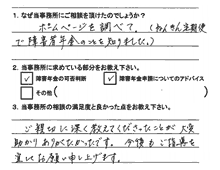 1. なぜ当事務所にご相談を頂けたのでしょうか？
ホームページを調べて。（ねんきん定期便
で障害年金のことを知りました。）
2. 当事務所に求めている部分をお教え下さい。
☑障害年金の可否判断 ☑障害年金申請についてのアドバイス
□その他（ ）
3. 当事務所の相談の満足度と良かった点をお教え下さい。
ご親切に深く教えてくださったことが大変
助かりありがたかったです。今後もご指導を
宜しくお願い申し上げます。